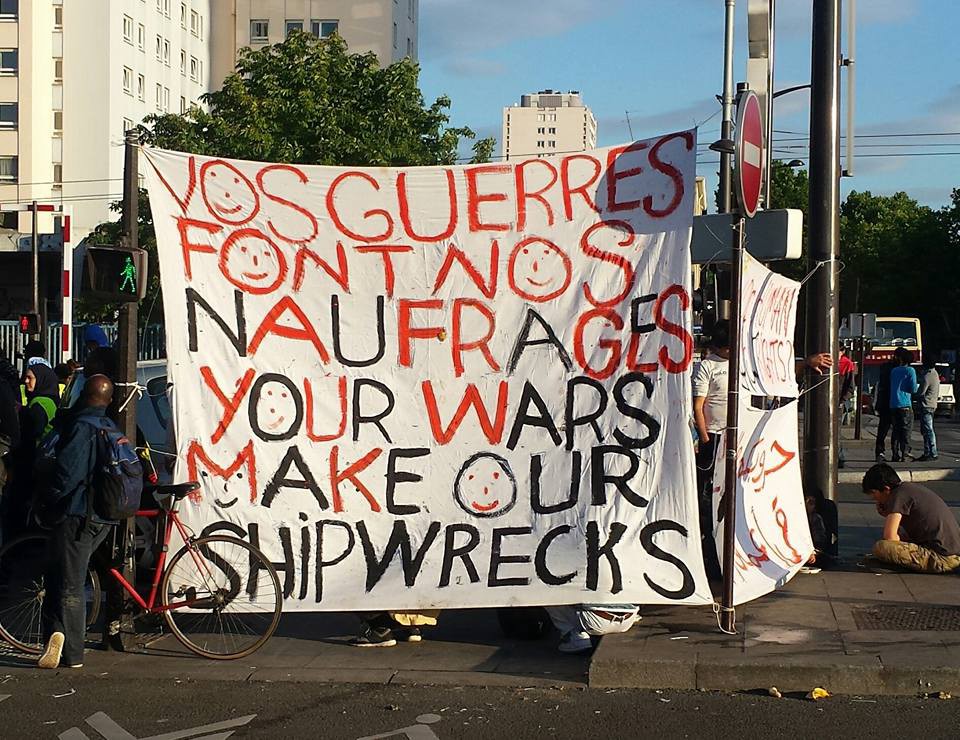 VOS GUERRES
FONT NOS
NAUFRAGES
YOUR WARS
MAKE OUR
SHiPWRECKS